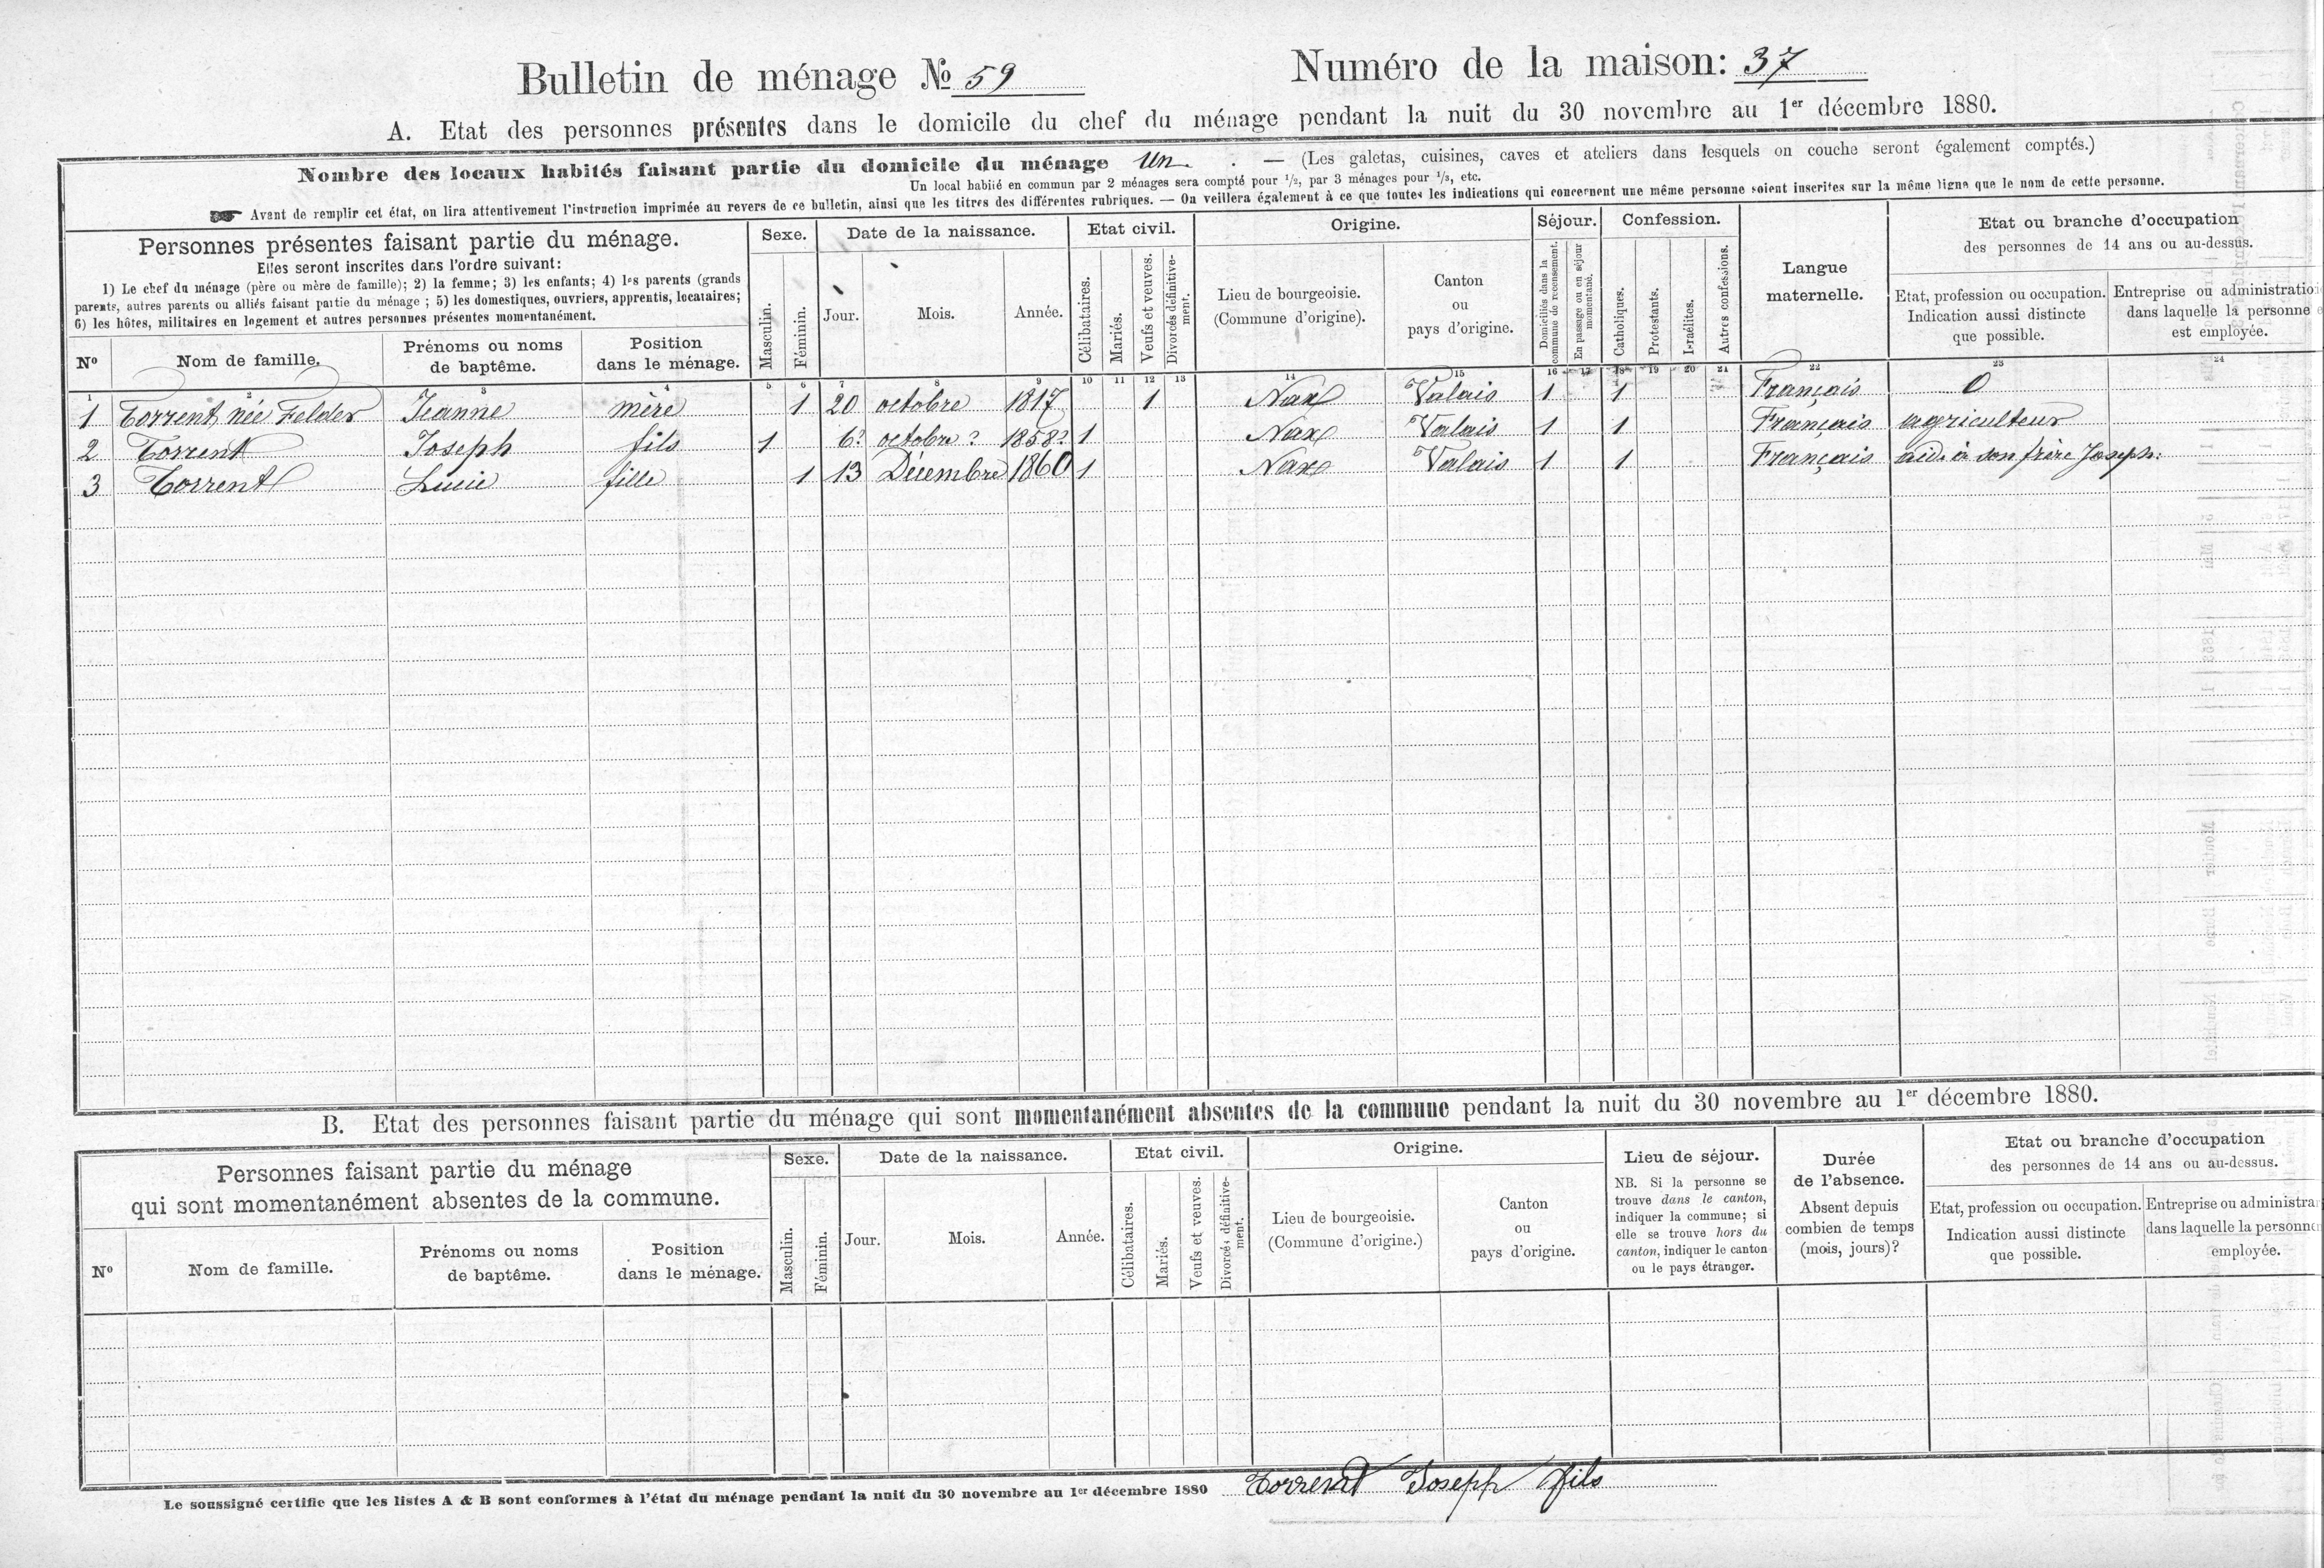 Bulletin de ménage № 59
Numéro de la maison: 37
A. Etat des personnes présentes dans le domicile du chef du ménage pendant la nuit du 30 novembre au 1er décembre 1880.
Nombre des locaux habités faisant partie du domicile du ménage un. — (Les galetas, cuisines, caves et ateliers dans lesquels on couche seront également comptés.)
Un local habité en commun par 2 ménages sera compté pour 1/2, par 3 ménages pour 1/3, etc.
Avant de remplir cet état, on lira attentivement l'instruction imprimée au revers de ce bulletin, ainsi que les titres des différentes rubriques. — On veillera également à ce que toutes les indications qui concernent une même personne soient inscrites sur la même ligne que le nom de cette personne.
Personnes présentes faisant partie du ménage.
Elles seront inscrites dans l'ordre suivant:
1) Le chef du ménage (père ou mère de famille); 2) la femme; 3) les enfants; 4) les parents (grands
parents, autres parents ou alliés faisant partie du ménage; 5) les domestiques, ouvriers, apprentis, locataires;
6) les hôtes, militaires en logement et autres personnes présentes momentanément.
Nº
Nom de famille.
Prénoms ou noms
de baptême.
Position
dans le ménage.
Sexe.
Masculin.
Féminin.
Date de la naissance.
Jour.
Mois.
Année.
Etat civil.
Célibataires.
Mariés.
Veufs et veuves.
Divorcés définitive-
ment.
Origine.
Lieu de bourgeoisie.
(Commune d'origine).
Canton
ou
pays d'origine.
Séjour.
Domiciliés dans la
commune de recensement.
En passage ou en séjour
momentané.
Confession.
Catholiques.
Protestants.
Israélites.
Autres confessions.
Langue
maternelle.
Etat ou branche d'occupation
des personnes de 14 ans ou au-dessus.
Etat, profession ou occupation.
Indication aussi distincte
que possible.
Entreprise ou administratio
dans laquelle la personne e
est employée.
1 2 3 4 5 6 7 8 9 10 11 12 13 14 15 16 17 18 19 20 21 22 23 24
1 Torrent, née Felder Jeanne mère 1 20 octobre 1817 1 Nax Valais 1 1 Français 0
2 Torrent Joseph fils 1 6? octobre? 1858? 1 Nax Valais 1 1 Français agriculteur
3 Torrent Lucie fille 1 13 Décembre 1860 1 Nax Valais 1 1 Français aide à son frère Joseph.
B. Etat des personnes faisant partie du ménage qui sont momentanément absentes de la commune pendant la nuit du 30 novembre au 1er décembre 1880.
Personnes faisant partie du ménage
qui sont momentanément absentes de la commune.
Nº
Nom de famille.
Prénoms ou noms
de baptême.
Position
dans le ménage.
Sexe.
Masculin.
Féminin.
Date de la naissance.
Jour.
Mois.
Année.
Etat civil.
Célibataires.
Mariés.
Veufs et veuves.
Divorcés définitive-
ment.
Origine.
Lieu de bourgeoisie.
(Commune d'origine.)
Canton
ou
pays d'origine.
Lieu de séjour.
NB. Si la personne se
trouve dans le canton,
indiquer la commune; si
elle se trouve hors du
canton, indiquer le canton
ou le pays étranger.
Durée
de l'absence.
Absent depuis
combien de temps
(mois, jours)?
Etat ou branche d'occupation
des personnes de 14 ans ou au-dessus.
Etat, profession ou occupation.
Indication aussi distincte
que possible.
Entreprise ou administra
dans laquelle la personne
employée.
Le soussigné certifie que les listes A & B sont conformes à l'état du ménage pendant la nuit du 30 novembre au 1er décembre 1880 Torrent Joseph fils